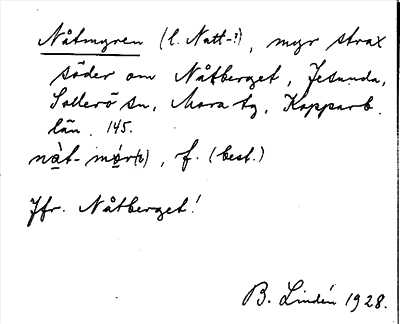 Nåtmyren (l. Natt-?), myr strax
söder om Nåtberget, Jesunda,
Sollerö sn, Mora tg, Kopparb.
län. 145.
nàt-mór(ɛ), f. (best.)
Jfr. Nåtberget!
B. Lindén 1928.